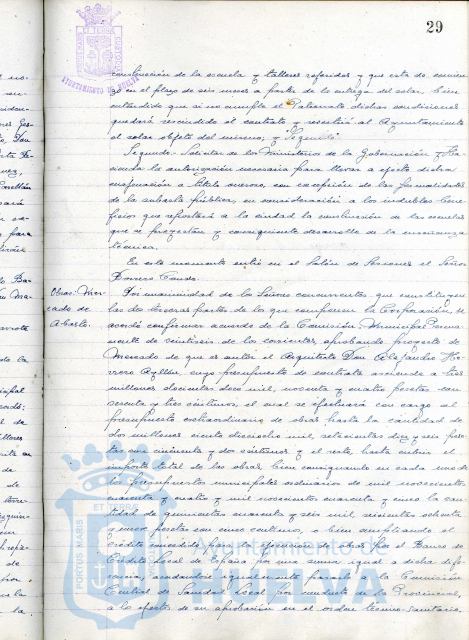 29
construcción de la escuela y talleres referidos y que esta de
en el plazo de seis meses a partir de la entrega del solar, bien
entendido que si no cumple el Patronato dichas condiciones
quedará rescindido el contrato y revertirá al Ayuntamiento
el solar objeto del mismo; y Segundo.
Segundo.- Solicitar de los Ministerios de la Gobernación y Ha-
cienda la autorización necesaria para llevar a efecto dicha
enajenación a título oneroso, con excepción de las formalidades
de la subasta pública, en consideración a los indudables bene-
ficios que reportará a la ciudad la construcción de las escuelas
que se proyectan y consiguiente desarrollo de la enseñanza
técnica.
En este momento entró en el Salón de Sesiones el Señor
Borrero Conde.
Obras: Mer-
cado de
Abasto.
Por unanimidad de los Señores concurrentes que constituyen
las dos terceras partes de los que componen la Corporación, se
acordó confirmar acuerdo de la Comisión Municipal Perma-
nente de veintiseis de los corrientes, aprobando proyecto de
Mercado de que es autor el Arquitecto Don Alejandro He-
rrero Ayllón cuyo presupuesto de contrata asciende a tres
millones doscientas doce mil, noventa y cuatro pesetas con
sesenta y tres céntimos, el cual se efectuará con cargo al
presupuesto extraordinario de obras hasta la cantidad de
dos millones ciento dieciocho mil, setecientas diez y seis pese-
tas con cincuenta y dos céntimos y el resto, hasta cubrir el
importe total de las obras, bien consignando en cada uno de
los presupuestos municipales ordinarios de mil novecientos
cuarenta y cuatro y mil novecientos cuarenta y cinco la can-
tidad de cuarenta y seis mil seiscientas ochenta
y nueve pesetas con cinco céntimos, o bien ampliando el
crédito concedido para la ejecución de obras por el Banco de
Crédito Local de España por una suma igual a dicha dife-
rencia, acordándose igualmente pasarlo a la Comisión
Central de Sanidad Local por conducto de la Provincial,
a los efectos de su aprobación en el orden técnico-sanitario,
AYUNTAMIENTO DE HUELVA
PORTUS MARIS ET TERRAE CUSTODIA
Ayuntamiento de
HUELVA